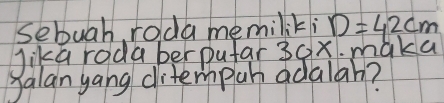 Sebuah roda memiliki D = 42cm
Jika roda berputar 30x. maka
Jalan yang ditempuh adalah?